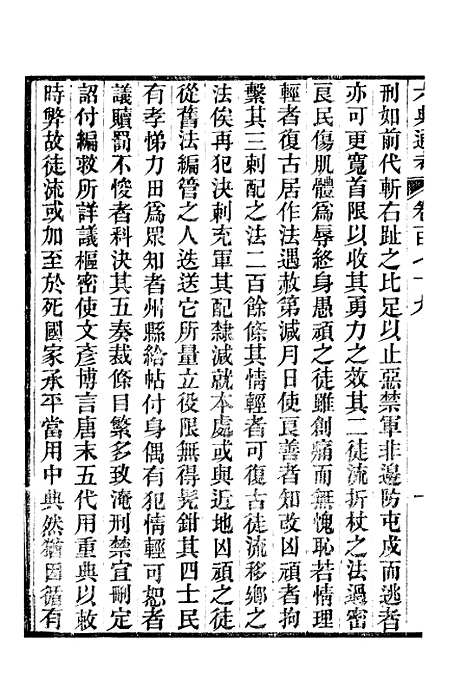 六典通考 卷百八十九
刑如前代斬右趾之比足以止惡禁軍非邊防屯戍而逃者
亦可更寬首限以收其勇力之效其二徒流折杖之法過密
良民傷肌體爲辱終身愚頑之徒雖創痛而無愧恥若情理
輕者復古居作法遇赦第減月日使良善者知改凶頑者拘
繫其三刺配之法二百餘條其情輕者可復古徒流移鄉之
法俟再犯決刺充軍其配隸減就本處或與近地凶頑之徒
從舊法編管之人迭送它所量立役限無得髡鉗其四士民
有孝悌力田爲眾知者州縣給帖付身偶有犯情輕可恕者
議贖罰不悛者科決其五奏裁條目繁多致淹刑禁宜刪定
詔付編敕所詳議樞密使文彥博言唐末五代用重典以救
時弊故徒流或加至於死國家承平當用中典然猶因循有